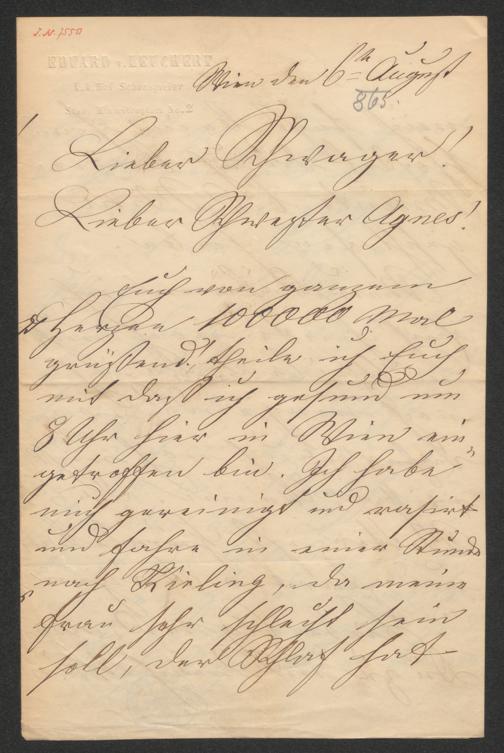 I.N. 7550
EDUARD v. LEUCHERT
k.k. Hof Schauspieler
No. 2
Wien den 6ᵗᵉ August
865.
Lieber Schwager!
Lieber Schwester Agnes!
Euch von ganzem
Herzen 100000 Mal
grüßend, theile ich Euch
mit daß ich gesund um
8 Uhr hier in Wien ein-
getroffen bin. Ich habe
mich gereinigt und rasirt
und fahre in einer Stunde
nach Kierling, da meine
Frau sehr schlecht sein
soll, der Schlaf hat